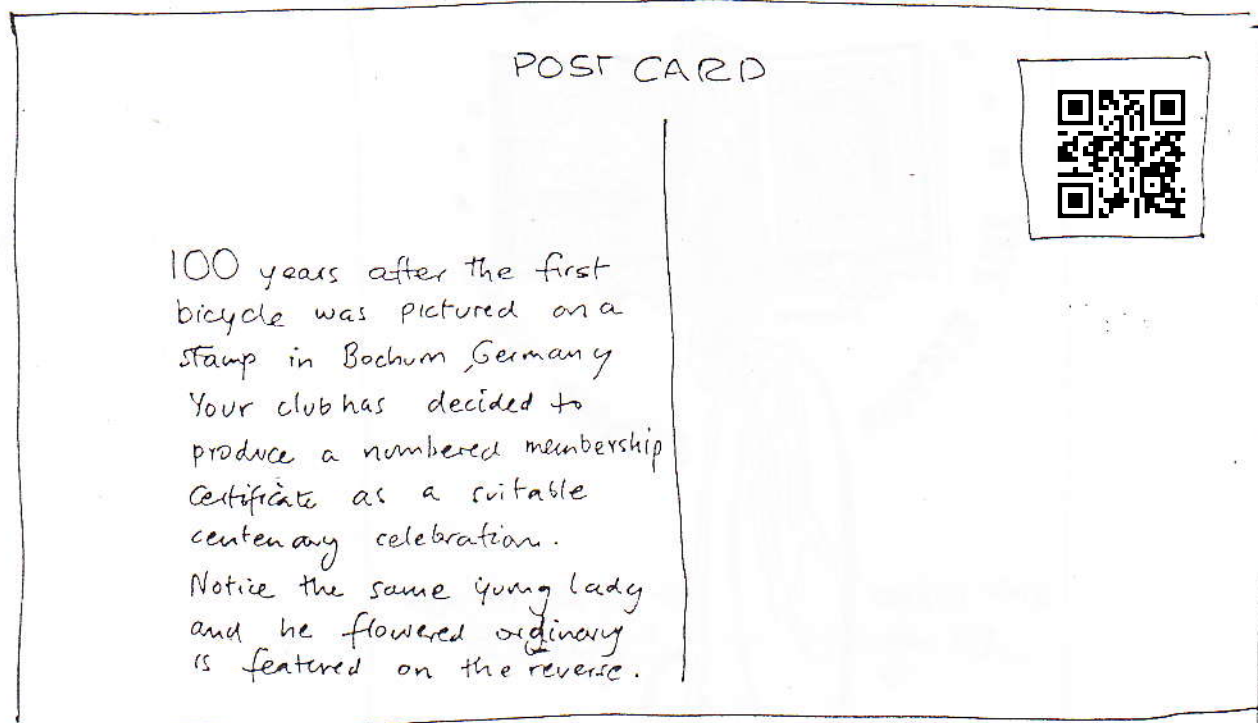 POST CARD
100 years after the first
bicycle was pictured on a
stamp in Bochum, Germany
Your club has decided to
produce a numbered membership
certificate as a suitable
centenary celebration.
Notice the same young lady
and he flowered ordinary
is featured on the reverse.